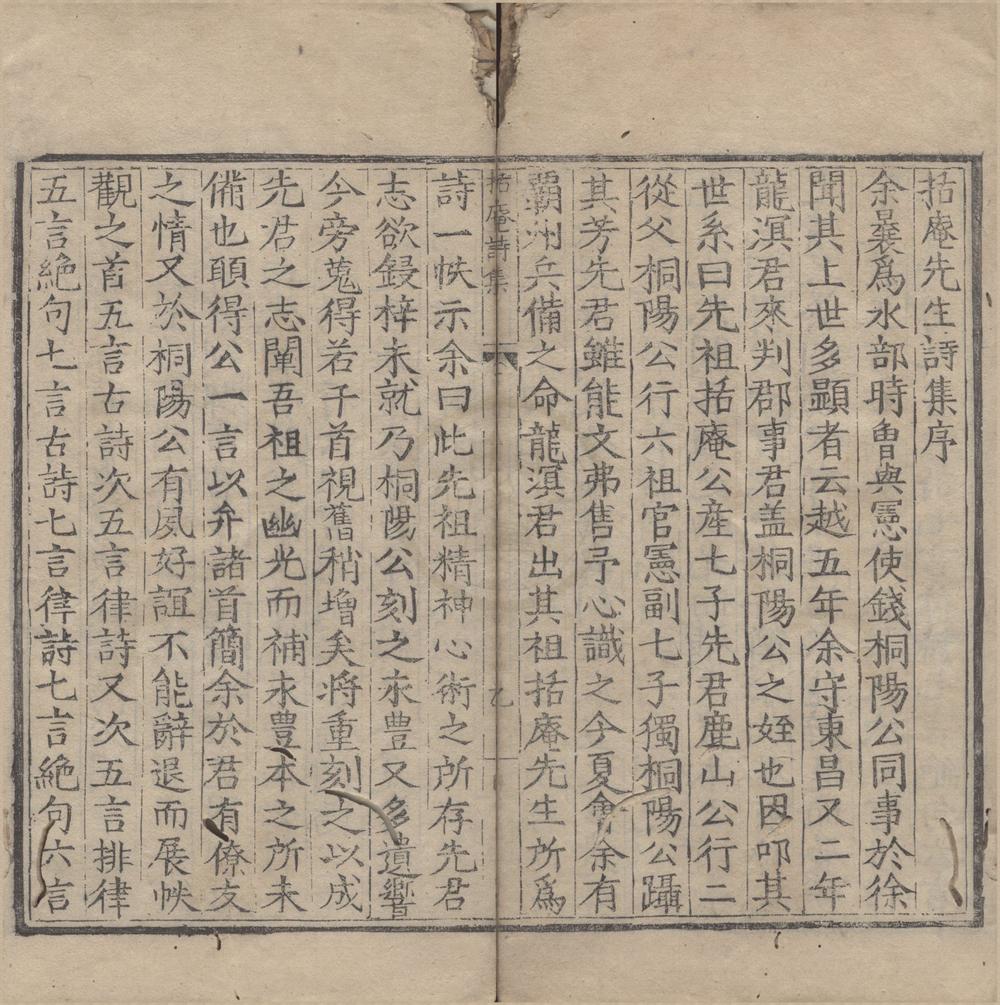 拈庵先生詩集序
余曩爲水部時曾與憲使錢桐陽公同事於徐
聞其上世多顯者云越五年余守東昌又二年
龍溟君來判郡事君盖桐陽公之姪也因叩其
世系曰先祖拈庵公産七子先君鹿山公行二
從父桐陽公行六祖官憲副七子獨桐陽公躡
其芳先君雖能文弗售予心識之今夏會余有
霸州兵備之命龍溟君出其祖拈庵先生所爲
拈庵詩集
乙
詩一帙示余曰此先祖精神心術之所存先君
志欲鋟梓未就乃桐陽公刻之永豊又多遺響
今旁蒐得若干首視舊稍增矣將重刻之以成
先君之志闡吾祖之幽光而補永豊本之所未
備也頤得公一言以弁諸首簡余於君有僚友
之情又於桐陽公有夙好誼不能辭退而展帙
觀之首五言古詩次五言律詩又次五言排律
五言絶句七言古詩七言律詩七言絶句六言